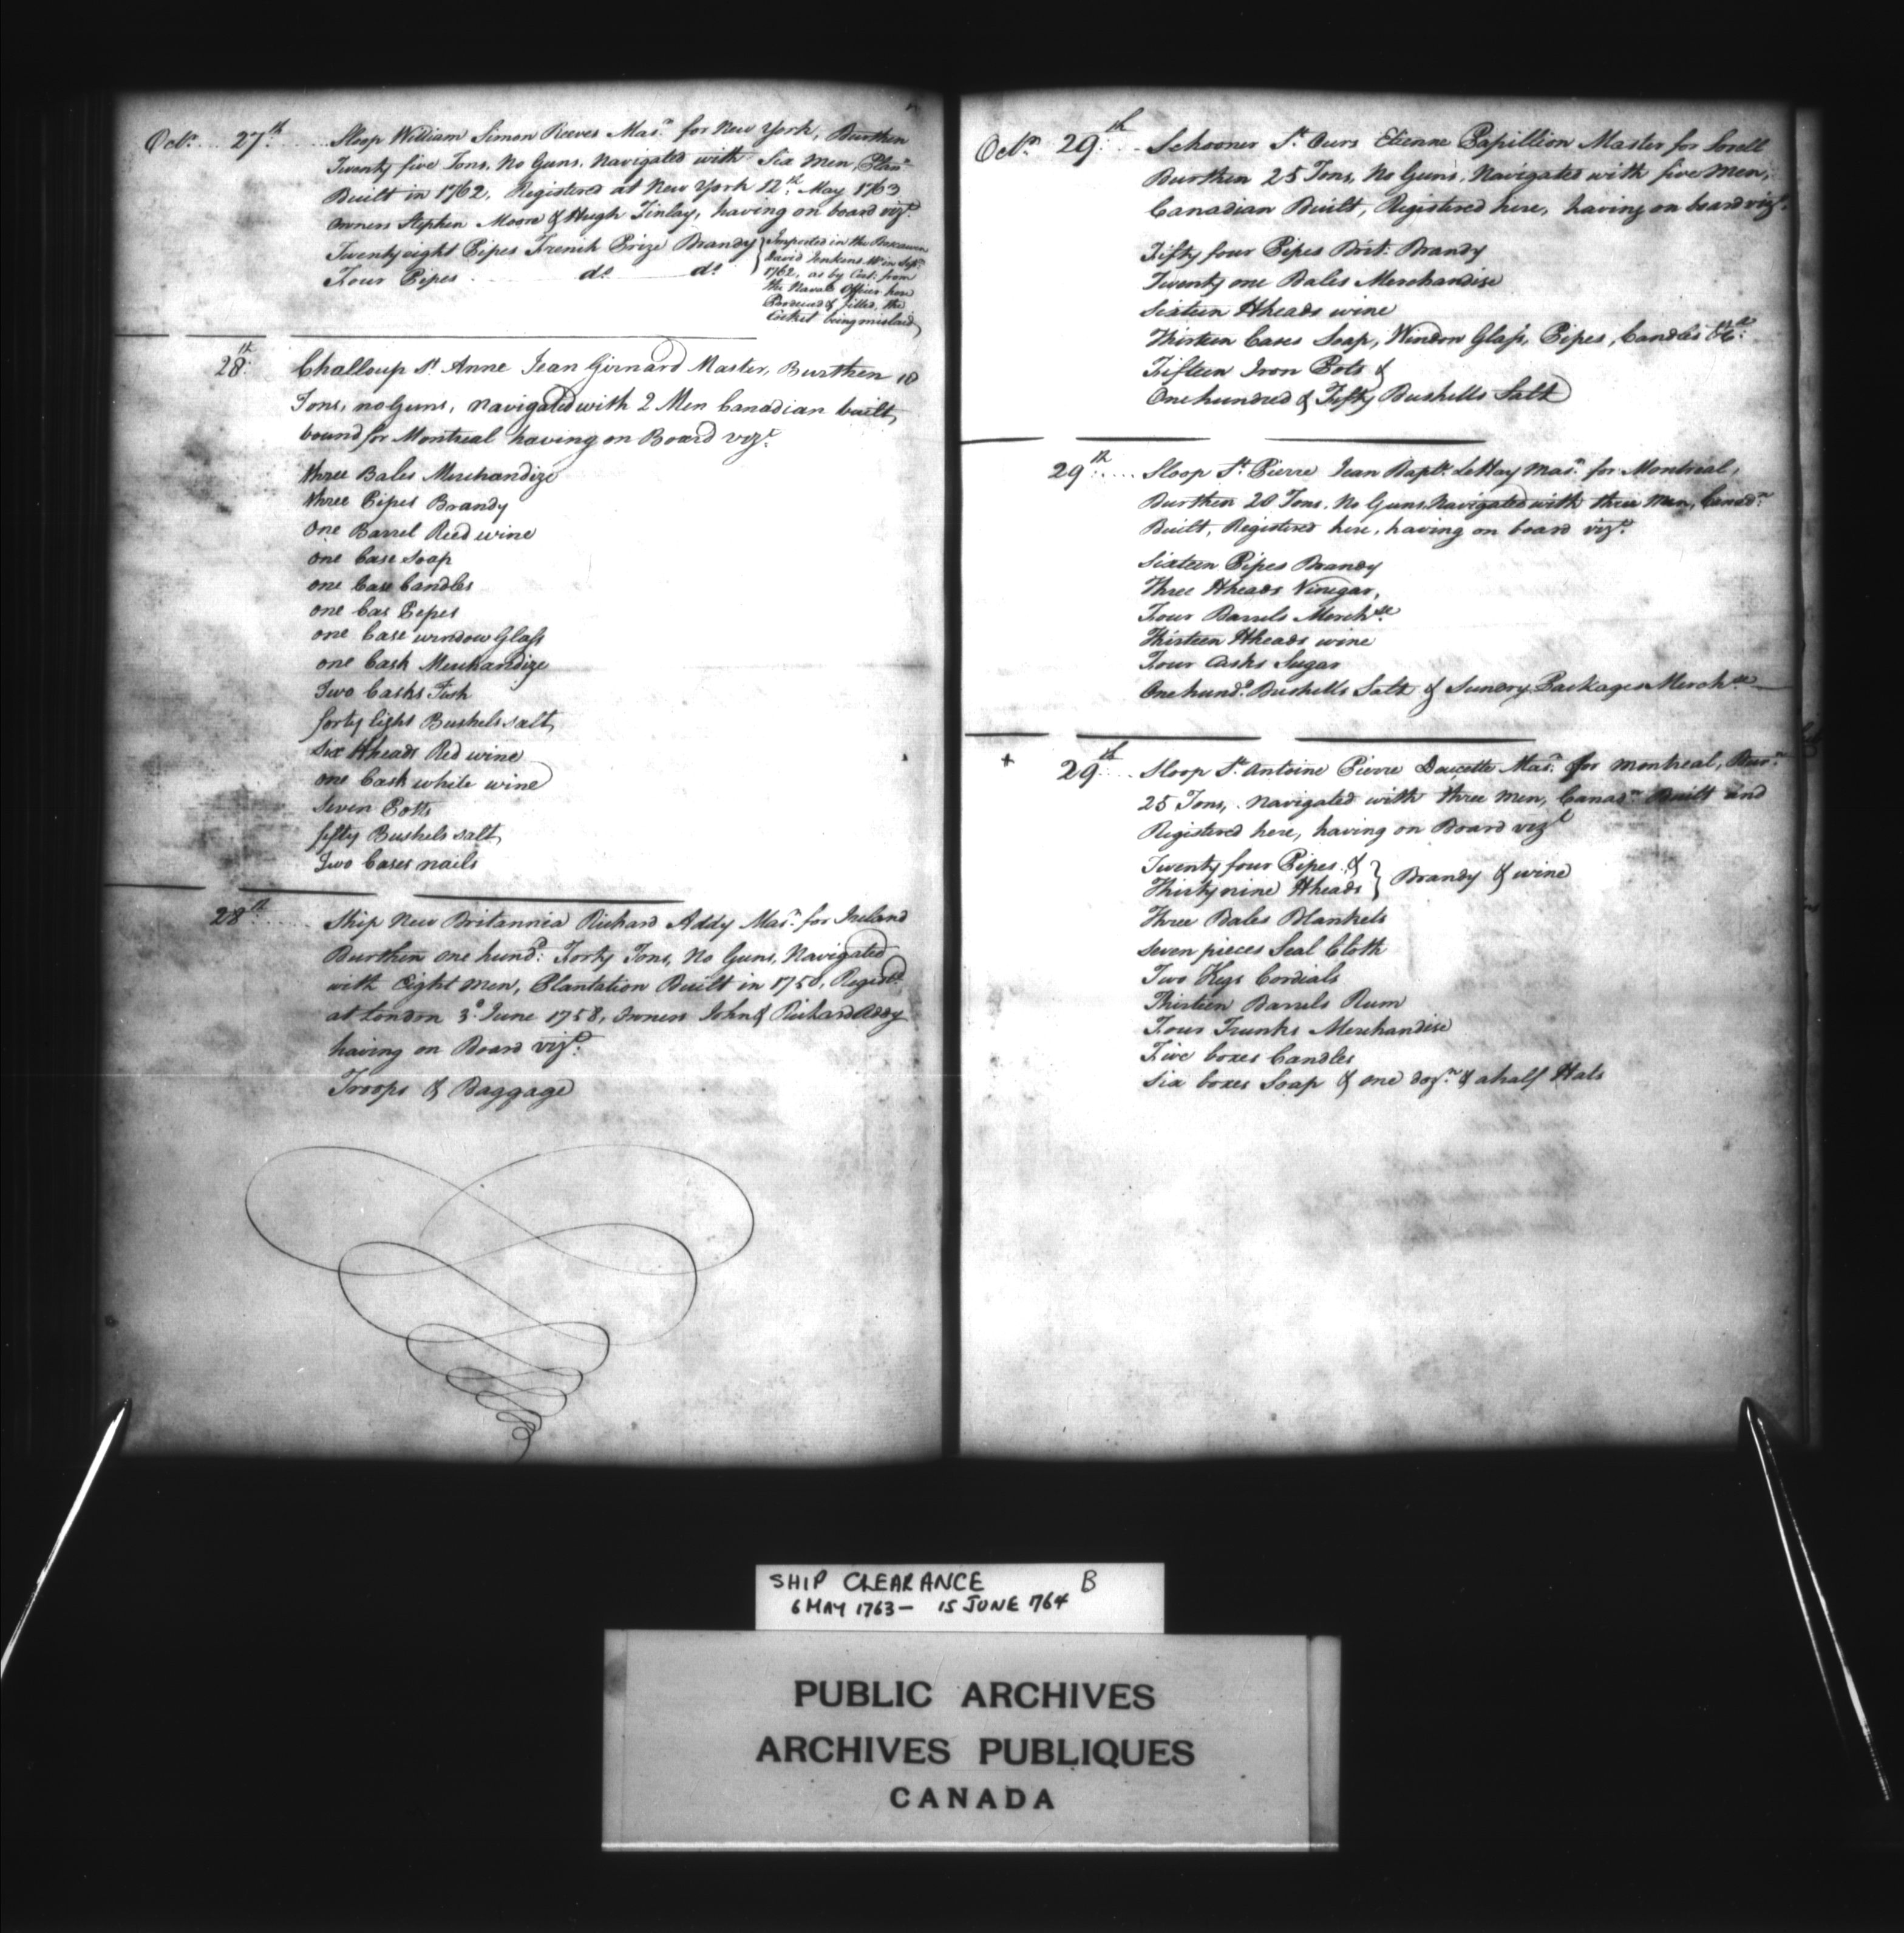 Octr. 27th. Sloop William Simon Reeves Masr. for New York, Burthen
Twenty five Tons, No Guns, Navigated with Six Men, Plann.
Built in 1762, Registered at New York 12th. May 1763
Owners Stephen Moore & Hugh Finlay, having on board vizt.
Twenty eight Pipes French Prize Brandy
Four Pipes do do
Imported in the Boscawen
David Jenkins Mr in Sepr.
1762, as by Cert. from
the Naval Officer here
Produced & filled, the
Cocket being mislaid
28th. Challoup St. Anne Jean Girnard Master, Burthen 10
Tons, no Guns, navigated with 2 Men Canadian built,
bound for Montreal having on Board vizt.
three Bales Merchandize
three Pipes Brandy
One Barrel Reed wine
one Case Soap
one Case Candles
one Cas Pipes
one Case window Glass
one Cask Merchandize
Two Casks Fish
forty Eight Bushels salt,
six Hheads Red wine
one Cask white wine
seven Potts
fifty Bushels salt,
Two Cases nails
28th. Ship New Britannia Richard Addy Masr. for Ireland
Burthen one hund: Forty Tons, No Guns, Navigated
with Eight Men, Plantation Built in 1750, Registd.
at London 3d. June 1758, Owners John & Richard Addy
having on Board vizt.
Troops & Baggage
Octr. 29th. Schooner St. Ours Etienne Papillion Master for Sorell
Burthen 25 Tons, No Guns, Navigated with five Men,
Canadian Built, Registered here, having on board vizt.
Fifty four Pipes Brit: Brandy
Twenty one Bales Merchandise
Sixteen Hheads wine
Thirteen Cases Soap, Window Glass, Pipes, Candles &ca.
Fifteen Iron Pots &
One hundred & Fifty Bushells Salt
29th. Sloop St. Pierre Jean Bapte. LeHay Masr. for Montreal,
Burthen 20 Tons, No Guns, Navigated with three Men, Canadn.
Built, Registered here, having on board vizt.
Sixteen Pipes Brandy
Three Hheads Vinegar,
Four Barrels Merchse.
Thirteen Hheads wine
Four Casks Sugar
One hundd. Bushells Salt & Sundry Packages Merchse
+ 29th. Sloop St. Antoine Pierre Doucette Masr. for Montreal, Burn.
25 Tons, Navigated with three Men, Canadn. Built and
Registered here, having on Board vizt
Twenty four Pipes &
Thirty nine Hheads } Brandy & wine
Three Bales Blankets
Seven pieces Seal Cloth
Two Kegs Cordials
Thirteen Barrels Rum
Four Trunks Merchandise
Five boxes Candles
Six boxes Soap & one dozn. & a half Hats
SHIP CLEARANCE B
6 MAY 1763 - 15 JUNE 1764
PUBLIC ARCHIVES
ARCHIVES PUBLIQUES
CANADA